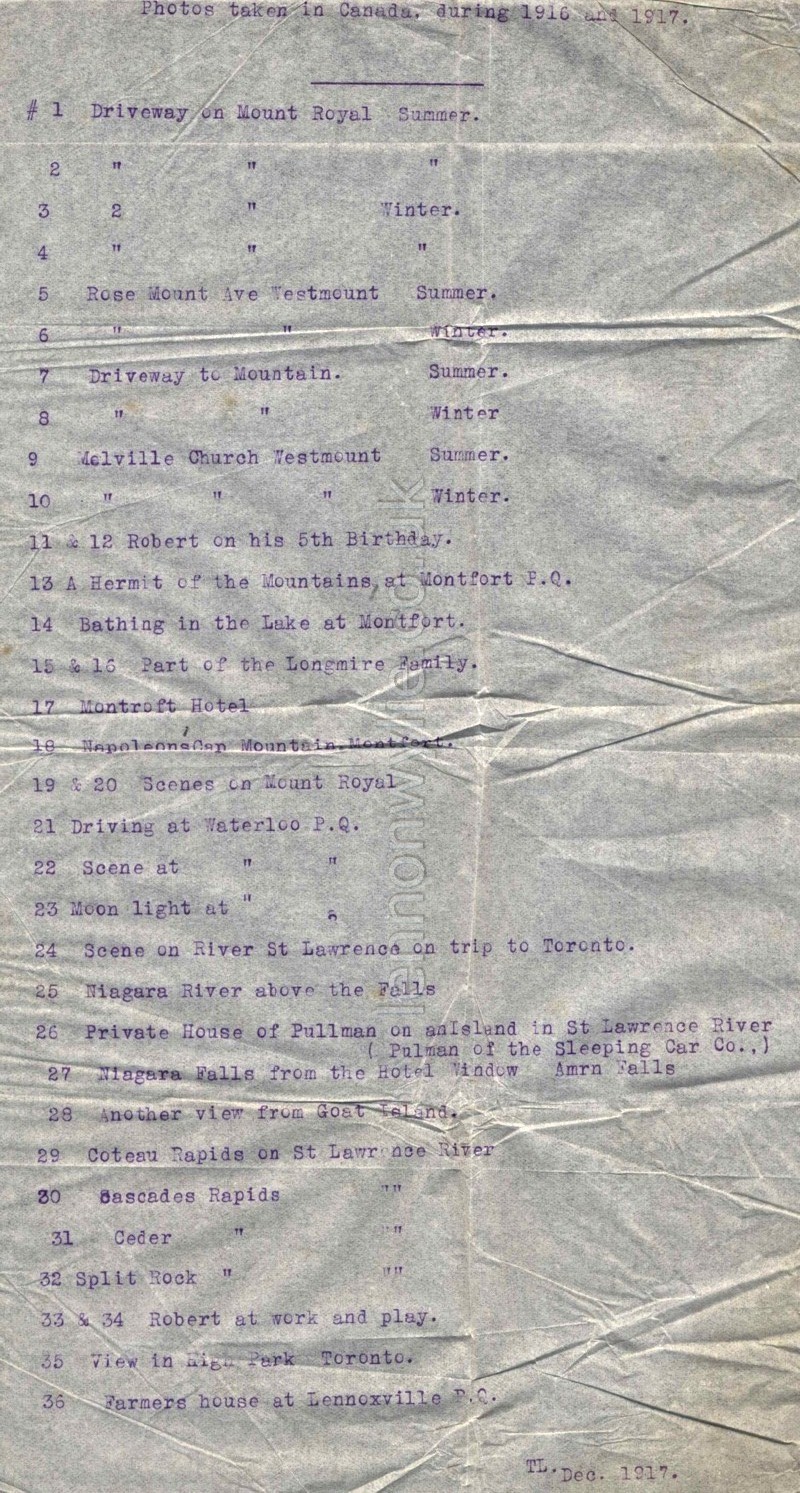 Photos taken in Canada. during 1916 and 1917.
# 1 Driveway on Mount Royal Summer.
2 " " "
3 2 " Winter.
4 " " "
5 Rose Mount Ave Westmount Summer.
6 " " Winter.
7 Driveway to Mountain. Summer.
8 " " Winter
9 Melville Church Westmount Summer.
10 " " " Winter.
11 & 12 Robert on his 5th Birthday.
13 A Hermit of the Mountains, at Montfort P.Q.
14 Bathing in the Lake at Montfort.
15 & 16 Part of the Longmire Family.
17 Montroft Hotel
18 Napoleons'Cap Mountain.Montfort.
19 & 20 Scenes on Mount Royal
21 Driving at Waterloo P.Q.
22 Scene at " "
23 Moon light at "
24 Scene on River St Lawrence on trip to Toronto.
25 Niagara River above the Falls
26 Private House of Pullman on anIsland in St Lawrence River
( Pulman of the Sleeping Car Co.,)
27 Niagara Falls from the Hotel Window Amrn Falls
28 Another view from Goat Island.
29 Coteau Rapids on St Lawrence River
30 Cascades Rapids ""
31 Ceder " ""
32 Split Rock " ""
33 & 34 Robert at work and play.
35 View in High Park Toronto.
36 Farmers house at Lennoxville P.Q.
TL. Dec. 1917.